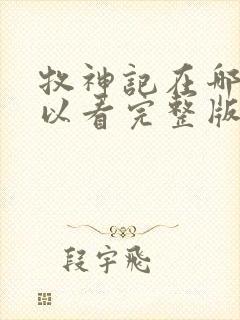 牧神记在哪
以看完整版
段宇飛